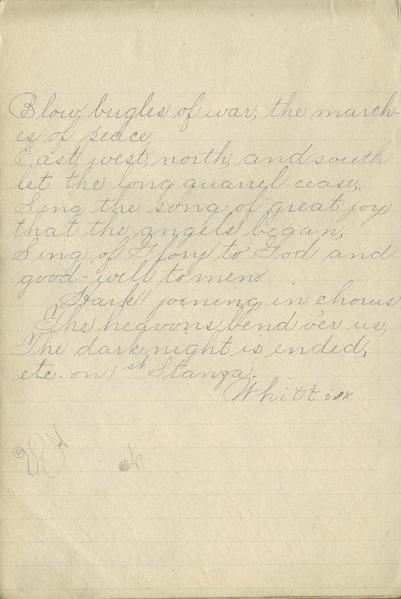 Blow, bugles of war, the march-
es of peace,
East west, north, and south
let the long quarrel cease,
Sing the song of great joy
that the angels began,
Sing of Glory to God and
good-will to men!
Hark! joining in chorus
The heavens, bend o'er us,
The dark night is ended,
etc. on 1st Stanza.
Whittier